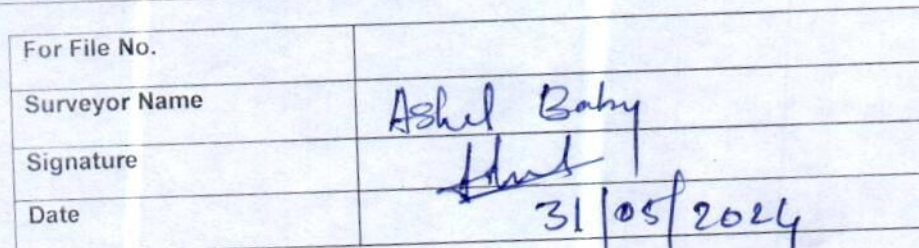 For File No.
Surveyor Name Ashel Baby
Signature
Date 31/05/2024